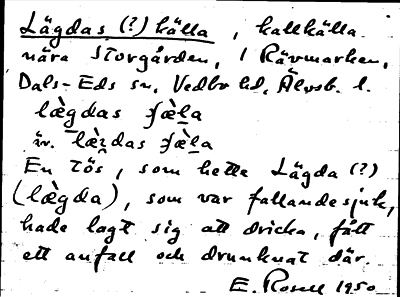 Lägdas (?) källa, kallkälla
nära Storgården, i Rävmarken,
Dals-Eds sn, Vedbo hd, Älvsb. l.
læ̀gdas ʃæ̀la
äv. læ̀i̯das ʃæ̀la
En tös, som hette Lägda (?)
(læ̀gda), som var fallandesjuk,
hade lagt sig att dricka, fått
ett anfall och drunknat där.
E. Rosell 1950